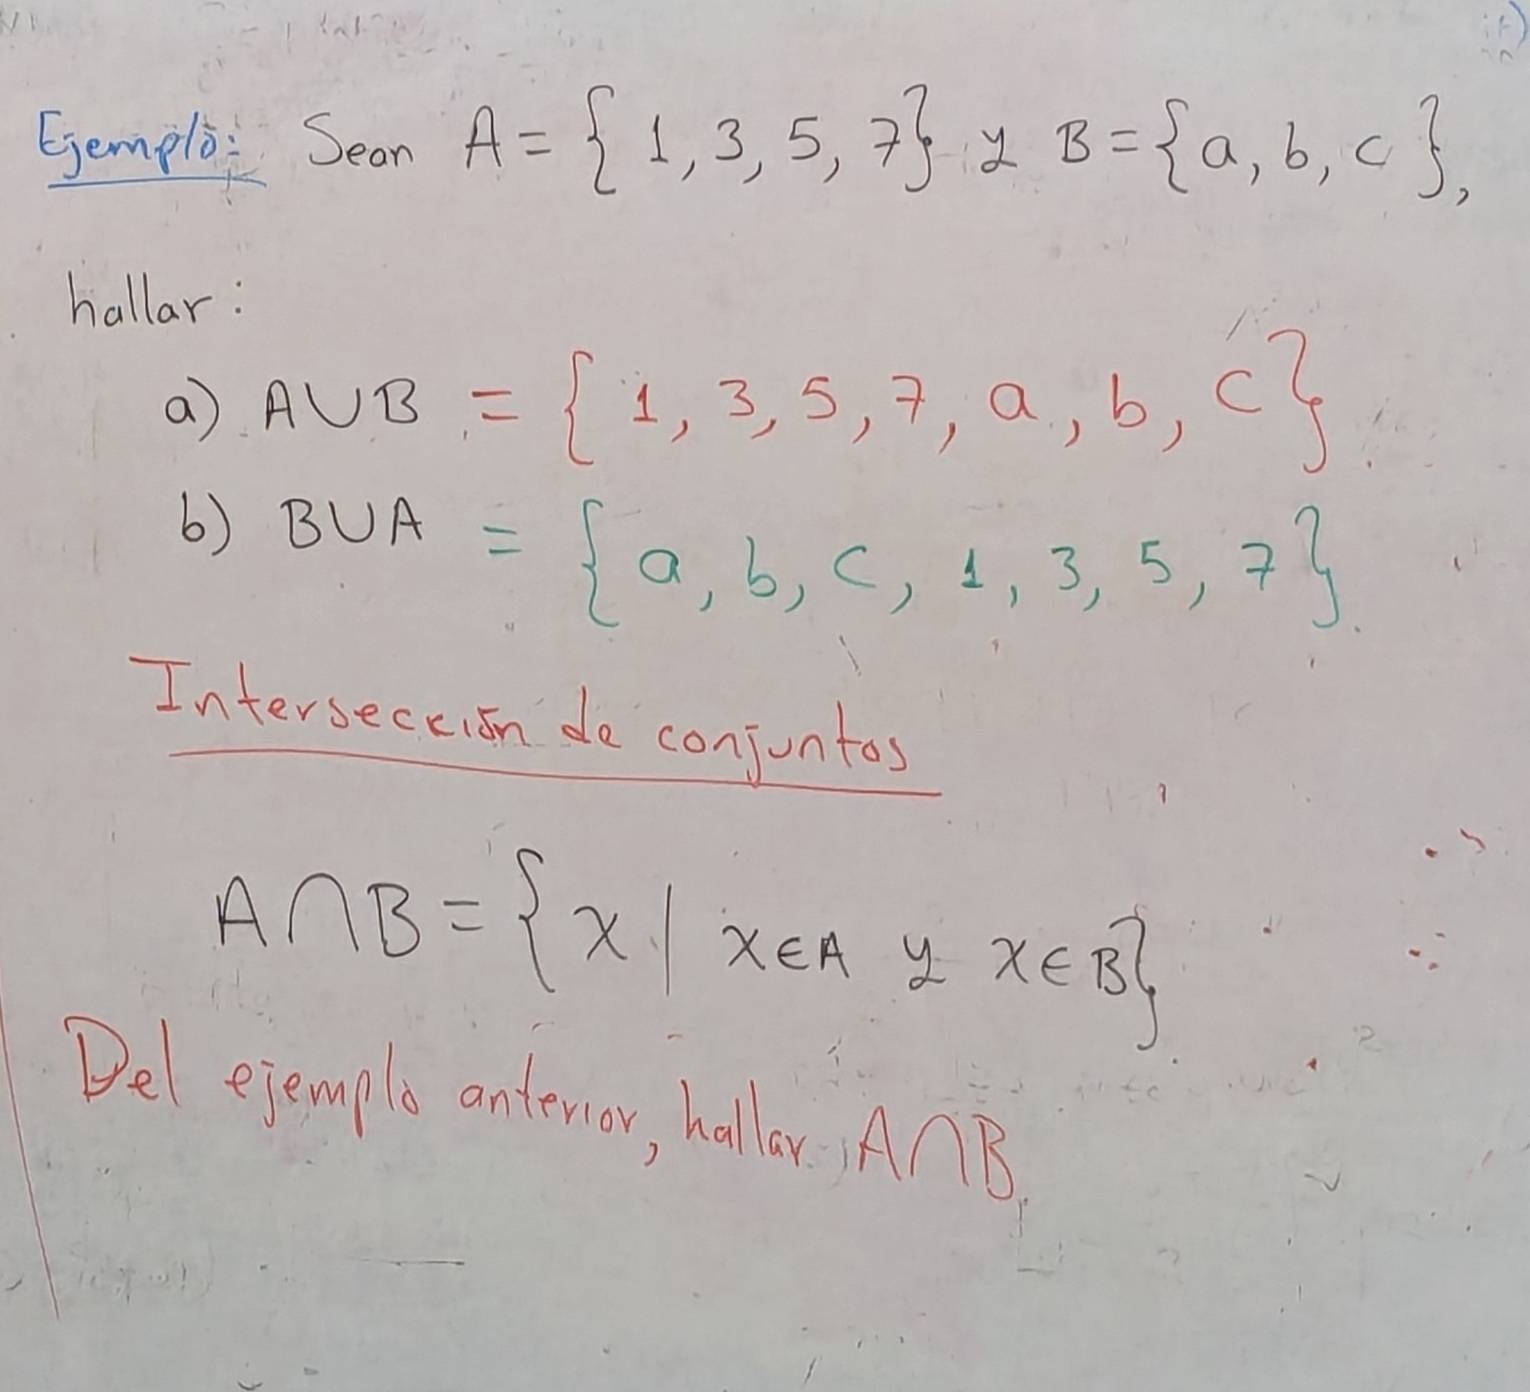 Ejemplo: Sean A = { 1, 3, 5, 7} y B = {a, b, c },
hallar:
a) A∪B = { 1, 3, 5, 7, a, b, c}
b) B∪A = { a, b, c, 1, 3, 5, 7}
Intersección de conjuntos
A∩B = { x | x∈A y x∈B}
Del ejemplo anterior, hallar A∩B